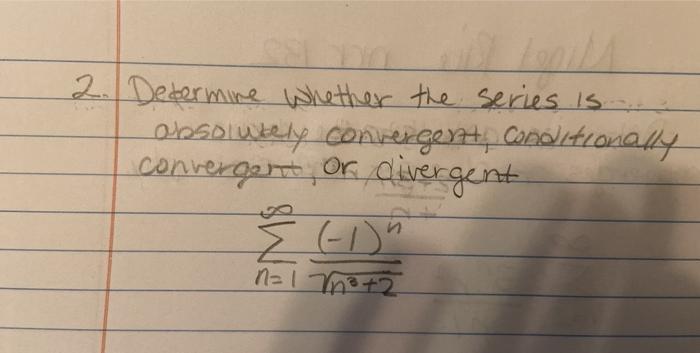 2. Determine whether the series is
absolutely convergent, conditionally
convergent, or divergent
∞
Σ (-1)ⁿ
n=1 √n³+2